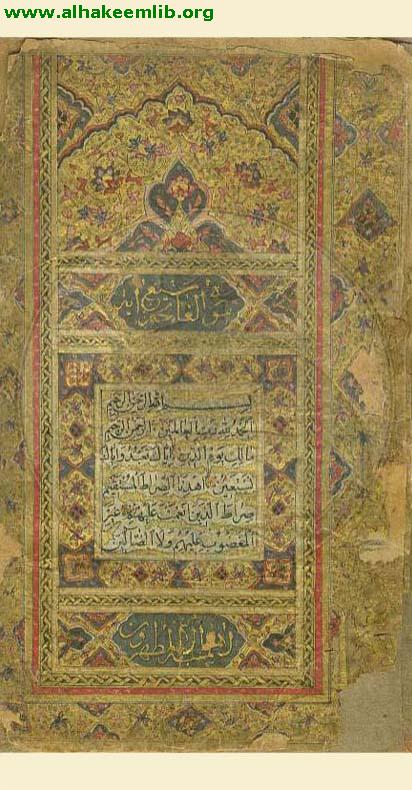 www.alhakeemlib.org
سورة الفاتحة سبع آيات
بسم الله الرحمن الرحيم
الحمد لله رب العالمين الرحمن الرحيم
مالك يوم الدين إياك نعبد وإياك
نستعين اهدنا الصراط المستقيم
صراط الذين أنعمت عليهم غير
المغضوب عليهم ولا الضالين
لا يمسه إلا المطهرون